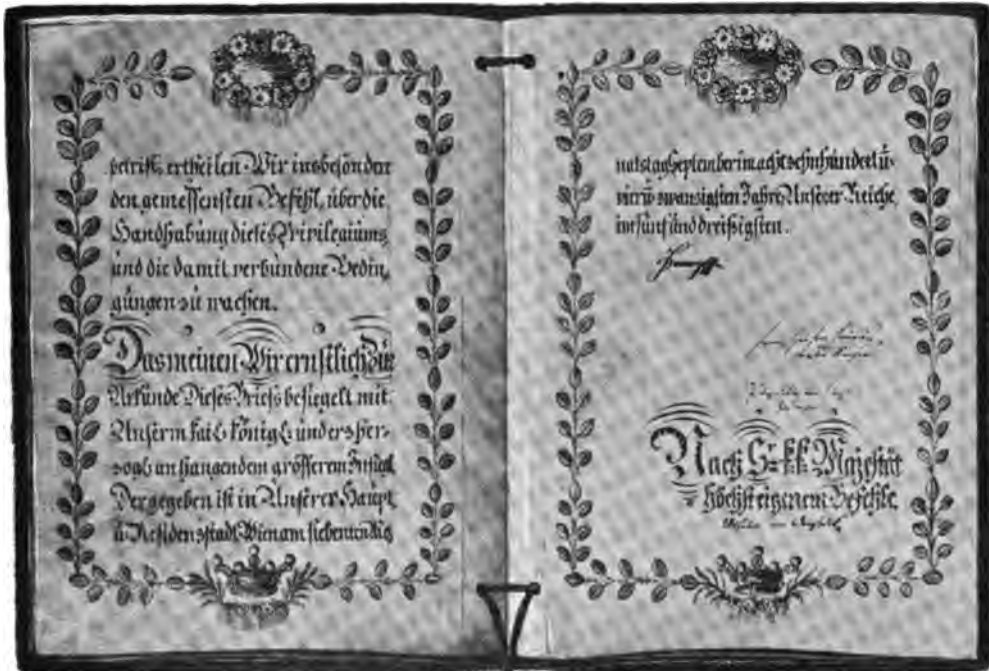 betrifft, ertheilen Wir insbesonder
den gemessensten Befehl, über die
Handhabung dieses Privilegiums
und die damit verbundene Bedin,
gungen zu wachen.
Das meinen Wir ernstlich. Zur
Urkunde Dieses Briefs besiegelt mit
Unserm kais. königl. und erzher-
zogl. anhangendem grösserem Insigel
Der gegeben ist in Unserer Haupt
u. Residenzstadt Wien am siebenten
natstag September im achtzehnhundert u.
vier u. zwanzigsten Jahre, Unserer Reiche
im fünf und dreißigsten.
Nach Sr. k. k. Majestät
höchst eigenem Befehle.